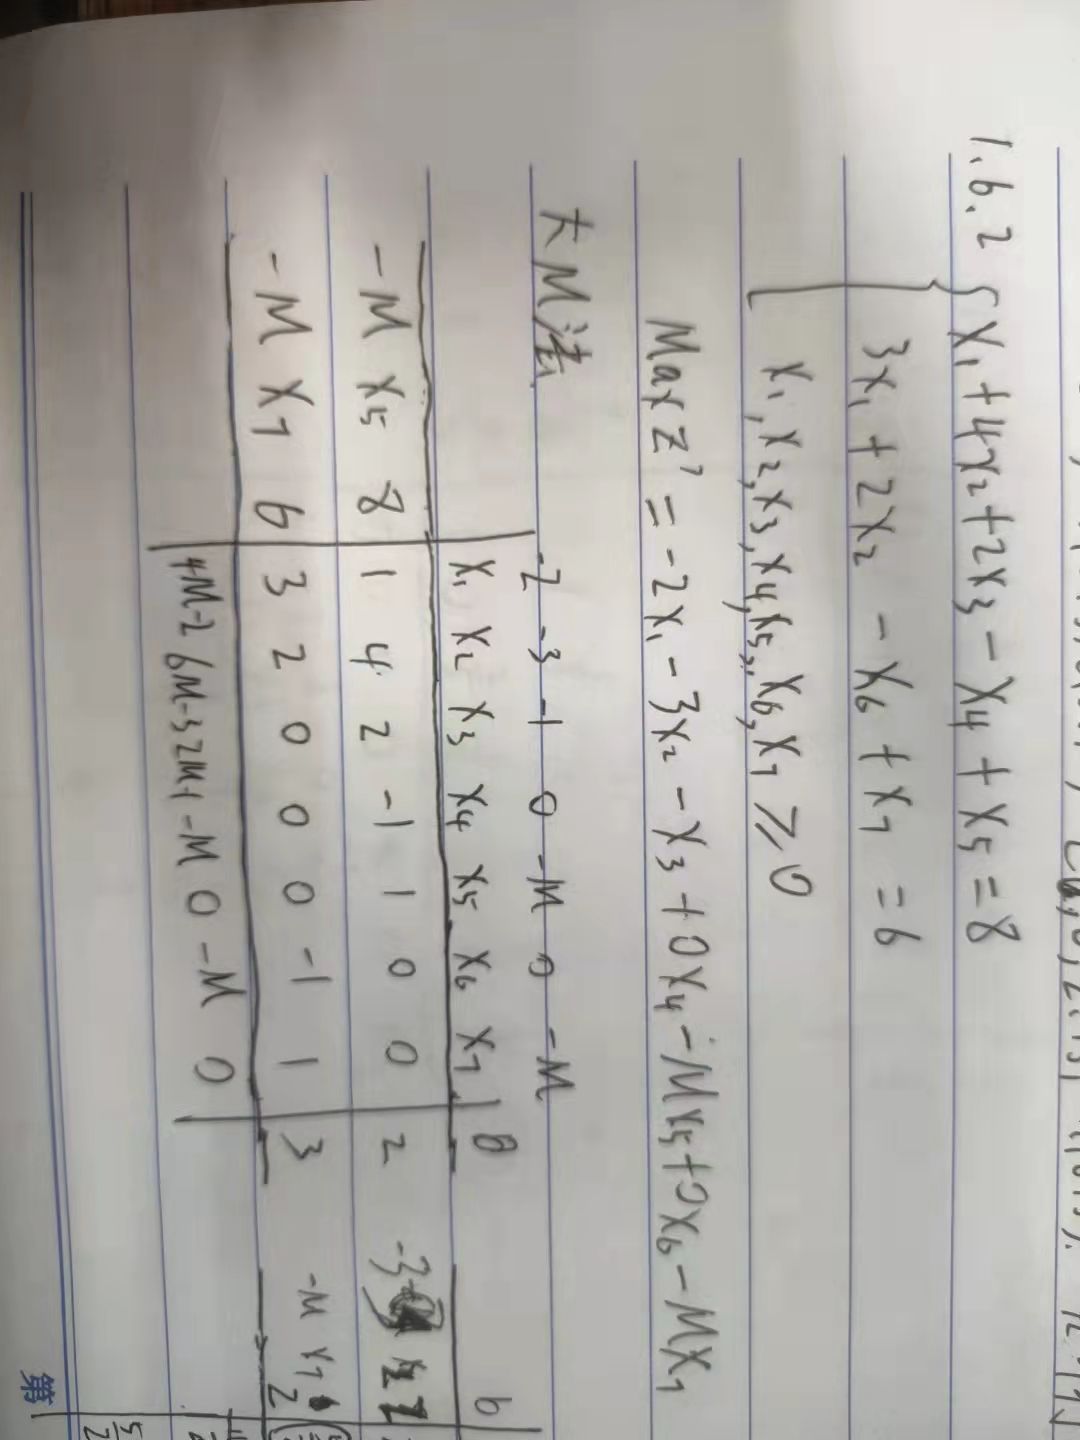 1.6.2 { x₁+4x₂+2x₃-x₄+x₅=8
3x₁+2x₂-x₆+x₇=6
x₁,x₂,x₃,x₄,x₅,x₆,x₇≥0
Max z'=-2x₁-3x₂-x₃+0x₄-Mx₅+0x₆-Mx₇
大M法
-2 -3 -1 0 -M 0 -M
x₁ x₂ x₃ x₄ x₅ x₆ x₇ θ b
-M x₅ 8 1 4 2 -1 1 0 0 2 -3 x₂ 2
-M x₇ 6 3 2 0 0 0 -1 1 3 -M x₇ 2
4M-2 6M-3 2M-1 -M 0 -M 0
5/2
第